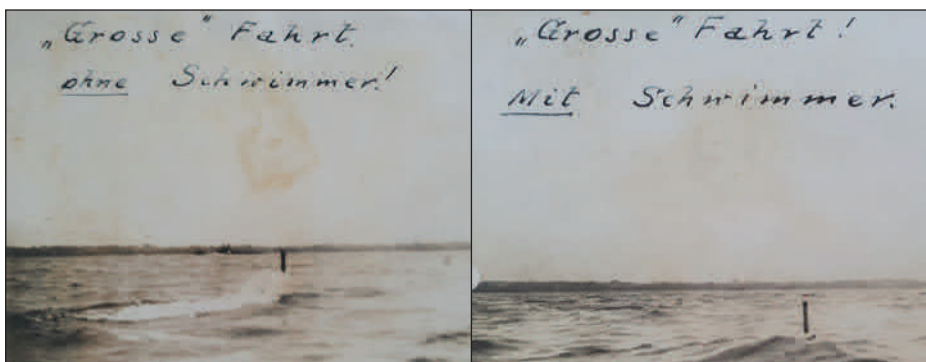 „Grosse” Fahrt.
ohne Schwimmer!
„Grosse” Fahrt!
Mit Schwimmer.